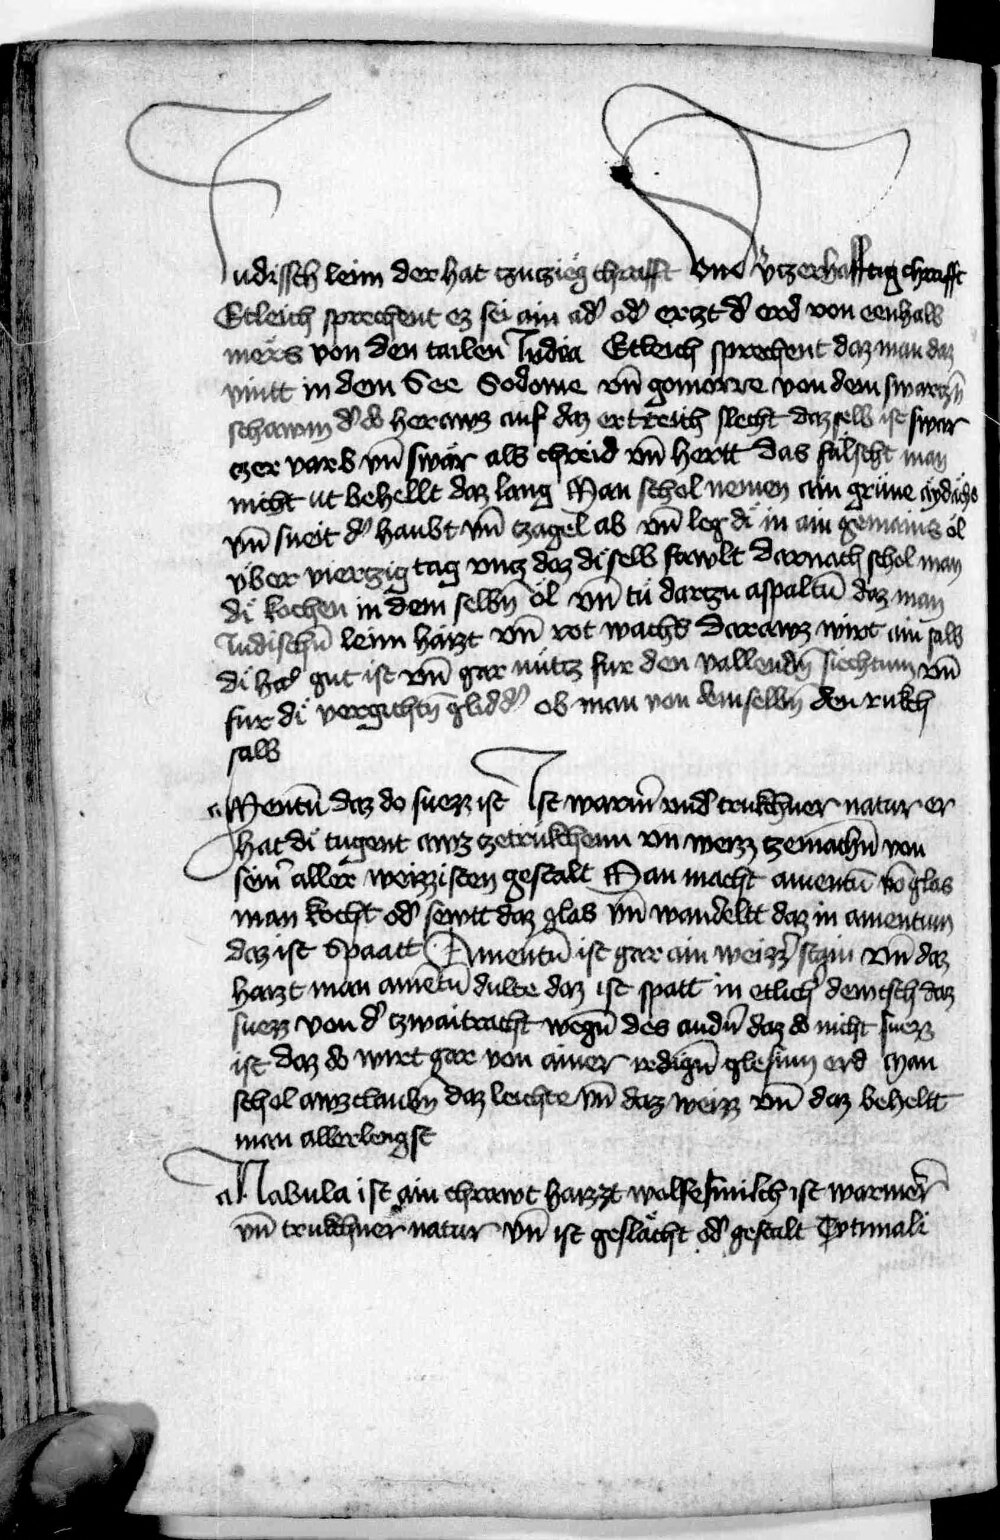 Iudissch leim der hat tzutzieg chrafft vnd vtzerhafftig chrafft
Etleich sprechent ez sei ain ad̕ od̕ ertzt d̕ erd von eenhalb
merͤs von den tailen Iudia Etleich sprechent daz man daz
vintt in dem See Sodome vn̄ gomorre von dem swartzn̄
schawm d̕ do herawz auf daz ertreich slecht daz selb ist swar
tzer varb vn̄ swär als chreid vn̄ hertt das fälscht man
nicht ut behellt daz lang Man schol nemen ain grüne aydachs
vn̄ sneit d̕ haubt vn̄ tzagel ab vn̄ leg di in ain gemains öl
vͤber viertzig tag vntz daz di selb fawlt Darnach schol man
di kochen in dem selbn̄ öl vn̄ tü dartzu aspaltū daz man
Iudischn̄ leim haizt vn̄ rot wachs Darawz wirt ain salb
di gut ist vn̄ gar nütz fur den vallendn̄ siechtum vn̄
fur di vergichtn̄ glidd̕ ob man von demselbn̄ den rukch
salb
a Mentū daz do suezz ist Ist warm̄ vnd trukchner natur er
hat di tugent awz zetrükchenn vn weizz tzemachn̄ von
seiner aller weizzisten gestalt Man macht amentū vō glas
man kocht od̕ sewtt daz glas vn̄ wandeltt daz in amentum
daz ist Spaatt Amentū ist gar ain weizz̕ stain vn̄ daz
haizt man amētū dulce daz ist spatt in etlich̕ dewtsch daz
suezz von d̕ tzwaitracht wegn̄ des andn̄ daz do nicht suezz
ist daz do wirt gar von ainer redign̄ glesinn erd Man
schol awzclaubn̄ daz leichte vn̄ daz weizz vn̄ daz beheltt
man allerlengst
a Nabula ist ain chrawt haizzt wolfesmilch ist warmer
vn̄ trukchner natur vn̄ ist geslächt od̕ gestalt Tytimali